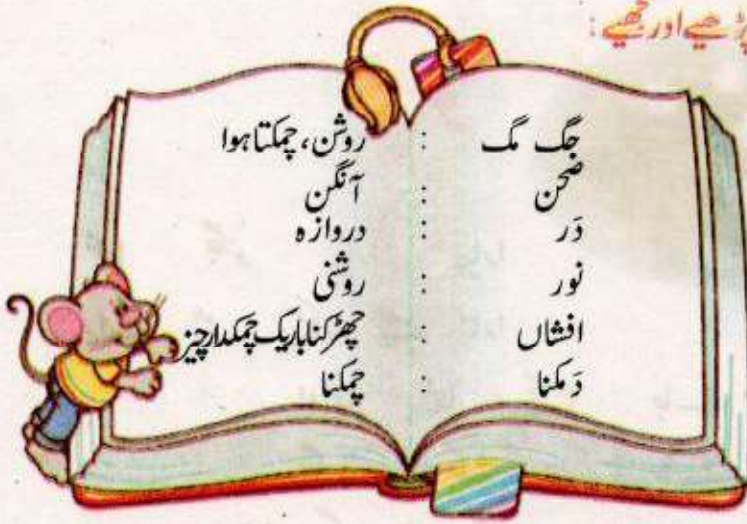 پڑھیے اور سمجھیے:
جگ مگ : روشن، چمکتا ہوا
صحن : آنگن
دَر : دروازہ
نور : روشنی
افشاں : چھڑکنا باریک چمکدار چیز
دَمکنا : چمکنا